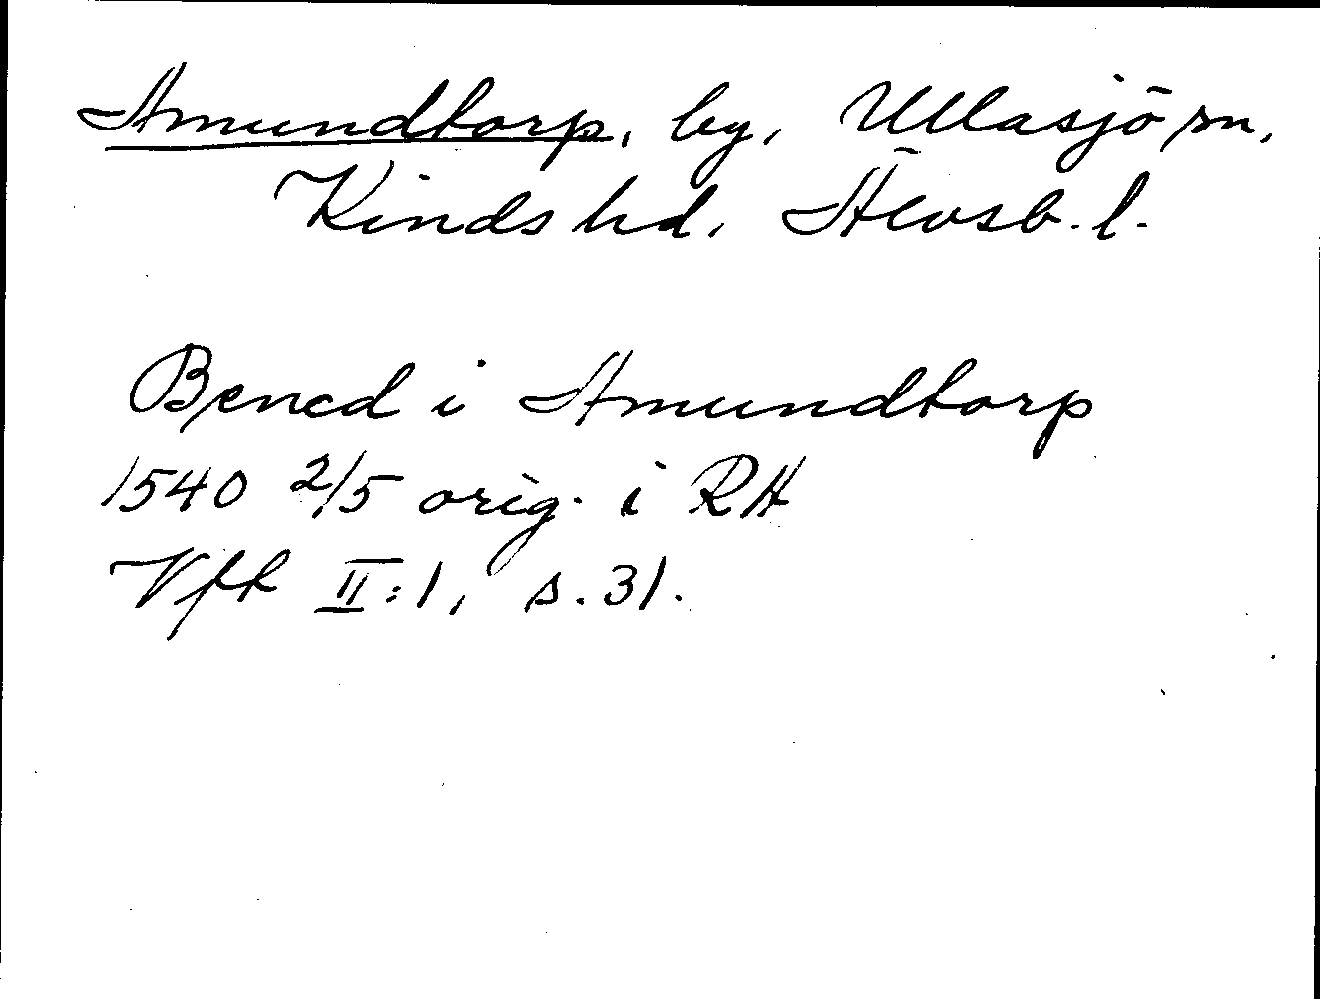 Amundtorp, by, Ullasjö sn,
Kinds hd, Älvsb. l.
Bened i Amundtorp
1540 2/5 orig. i RA
Vfk II:1, s. 31.